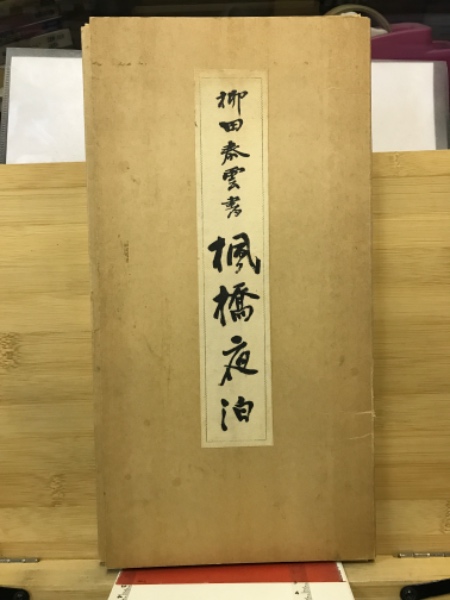 柳田泰雲書 楓橋夜泊